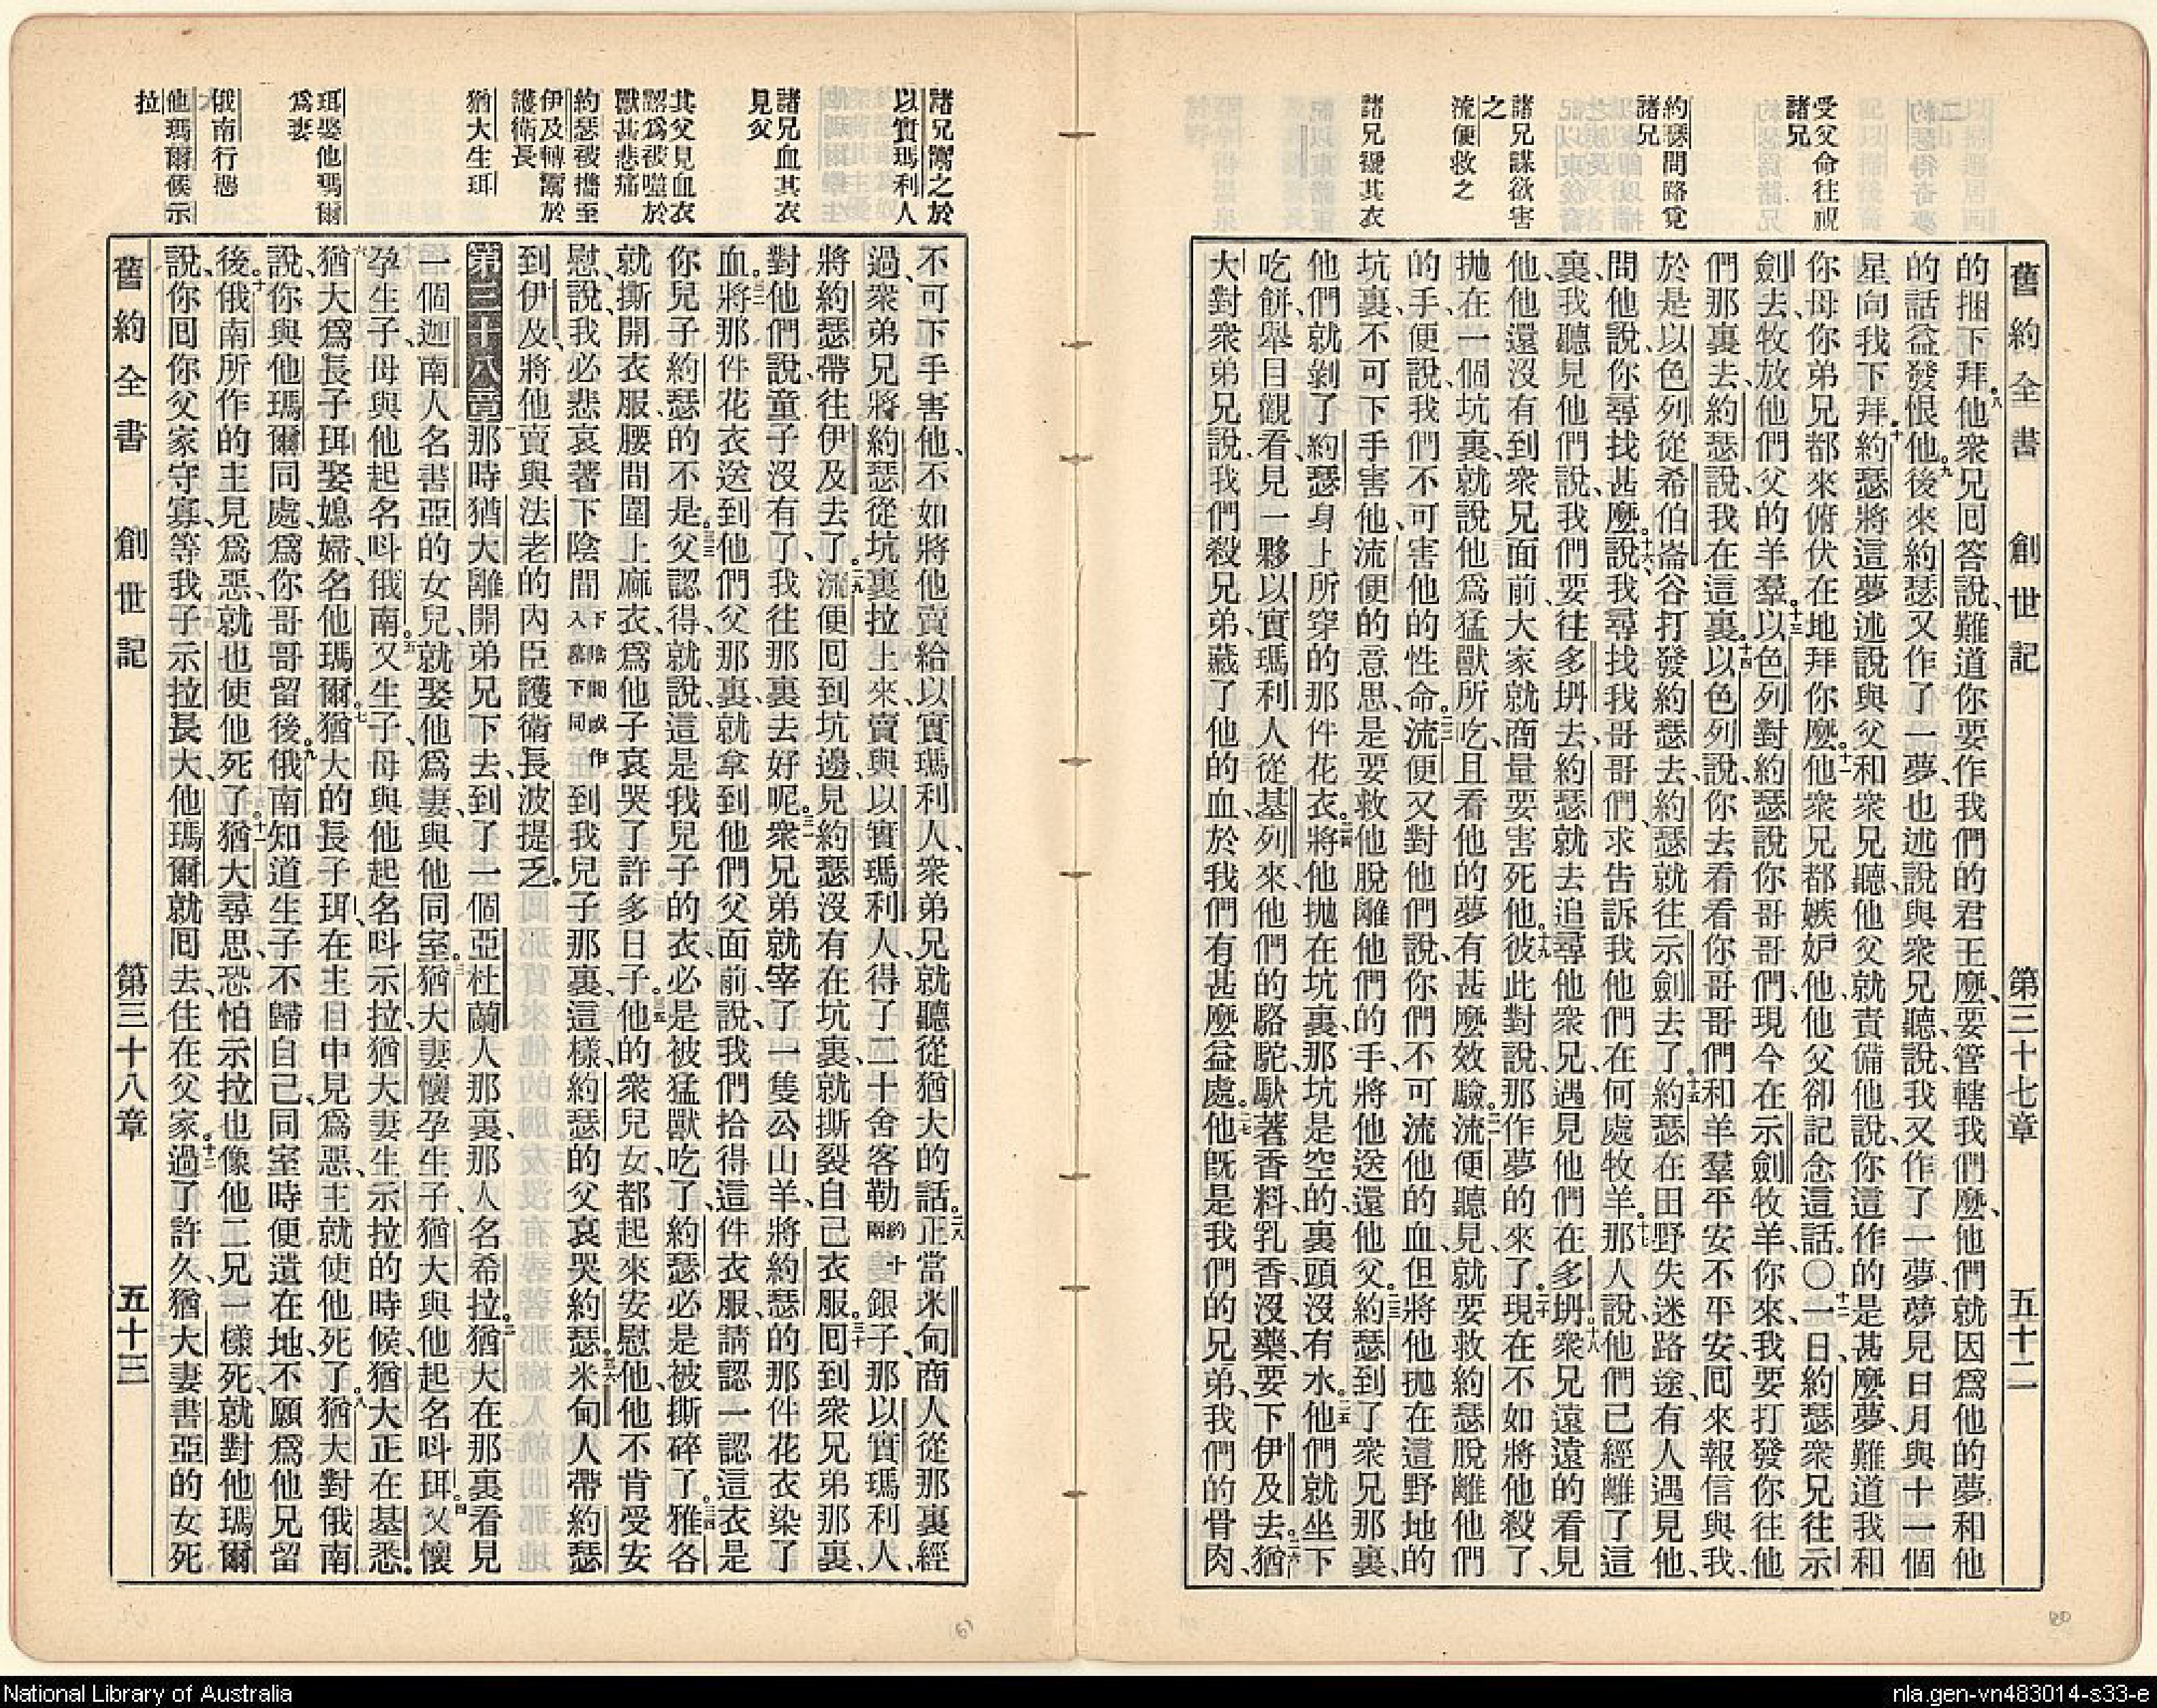 舊約全書　創世記　第三十七章　五十二
受父命往視
諸兄
約瑟問路覓
諸兄
諸兄謀欲害
之
流便救之
諸兄褫其衣
的捆下拜。八他衆兄回答說、難道你要作我們的君王麼、要管轄我們麼、他們就因爲他的夢和他
的話益發恨他。九後來約瑟又作了一夢、也述說與衆兄聽、說、我又作了一夢、夢見日月與十一個
星向我下拜。十約瑟將這夢述說與父和衆兄聽、他父就責備他說、你這作的是甚麼夢、難道我和
你母你弟兄都來俯伏在地拜你麼。十一他衆兄都嫉妒他、他父卻記念這話。〇十二一日約瑟衆兄往示
劍去、牧放他們父的羊羣。十三以色列對約瑟說、你哥哥們、現今在示劍牧羊、你來、我要打發你往他
們那裏去、約瑟說、我在這裏。十四以色列說、你去看看你哥哥們和羊羣平安不平安、回來報信與我、
於是以色列從希伯崙谷打發約瑟去、約瑟就往示劍去了。十五約瑟在田野失迷路途、有人遇見他、
問他說、你尋找甚麼。十六說、我尋找我哥哥們、求告訴我他們在何處牧羊。十七那人說、他們已經離了這
裏、我聽見他們說、我們要往多坍去、約瑟就去追尋他衆兄、遇見他們在多坍。十八衆兄遠遠的看見
他、他還沒有到衆兄面前、大家就商量要害死他。十九彼此對說、那作夢的來了。二十現在不如將他殺了、
抛在一個坑裏、就說他爲猛獸所吃、且看他的夢有甚麼效驗。二一流便聽見、就要救約瑟脫離他們
的手、便說、我們不可害他的性命。二二流便又對他們說、你們不可流他的血、但將他抛在這野地的
坑裏、不可下手害他、流便的意思、是要救他脫離他們的手、將他送還他父。二三約瑟到了衆兄那裏、
他們就剝了約瑟身上所穿的那件花衣。二四將他抛在坑裏、那坑是空的、裏頭沒有水。二五他們就坐下
吃餅、舉目觀看、見一夥以實瑪利人從基列來、他們的駱駝馱著香料、乳香、沒藥、要下伊及去。二六猶
大對衆弟兄說、我們殺兄弟、藏了他的血、於我們有甚麼益處。二七他旣是我們的兄弟、我們的骨肉、
諸兄鬻之於
以質瑪利人
諸兄血其衣
見父
其父見血衣
認爲被噬於
獸甚悲痛
約瑟被攜至
伊及轉鬻於
護衛長
猶大生珥
珥娶他瑪爾
爲妻
俄南行惡
他瑪爾候示
拉
不可下手害他、不如將他賣給以實瑪利人、衆弟兄就聽從猶大的話。二八正當米甸商人從那裏經
過、衆弟兄將約瑟從坑裏拉上來、賣與以實瑪利人、得了二十舍客勒約十兩銀子、那以實瑪利人、
將約瑟帶往伊及去了。二九流便回到坑邊、見約瑟沒有在坑裏、就撕裂自己衣服。三十回到衆兄弟那裏、
對他們說、童子沒有了、我往那裏去好呢。三一衆兄弟就宰了一隻公山羊、將約瑟的那件花衣染了
血。三二將那件花衣送到他們父那裏、就拿到他們父面前、說、我們拾得這件衣服、請認一認、這衣是
你兒子約瑟的不是。三三父認得、就說、這是我兒子的衣、必是被猛獸吃了、約瑟必是被撕碎了。三四雅各
就撕開衣服、腰間圍上麻衣、爲他子哀哭了許多日子。三五他的衆兒女、都起來安慰他、他不肯受安
慰、說、我必悲哀著下陰間下陰間或作入墓下同到我兒子那裏、這樣、約瑟的父哀哭約瑟。三六米甸人帶約瑟
到伊及、將他賣與法老的內臣護衛長波提乏。
第三十八章　一那時猶大離開弟兄下去、到了一個亞杜蘭人那裏、那人名希拉。二猶大在那裏看見
一個迦南人名書亞的女兒、就娶他爲妻、與他同室。三猶大妻懷孕生子、猶大與他起名呌珥。四又懷
孕生子、母與他起名呌俄南。五又生子、母與他起名呌示拉、猶大妻生示拉的時候、猶大正在基悉。
六猶大爲長子珥娶媳婦、名他瑪爾。七猶大的長子珥、在主目中見爲惡、主就使他死了。八猶大對俄南
說、你與他瑪爾同處、爲你哥哥留後。九俄南知道生子不歸自己、同室時便遺在地、不願爲他兄留
後。十俄南所作的主見爲惡、就也使他死了。十一猶大尋思、恐怕示拉也像他二兄一樣死、就對他瑪爾
說、你回你父家守寡、等我子示拉長大、他瑪爾就回去住在父家。十二過了許久、猶大妻書亞的女死
舊約全書　創世記　第三十八章　五十三
National Library of Australia
nla.gen-vn483014-s33-e